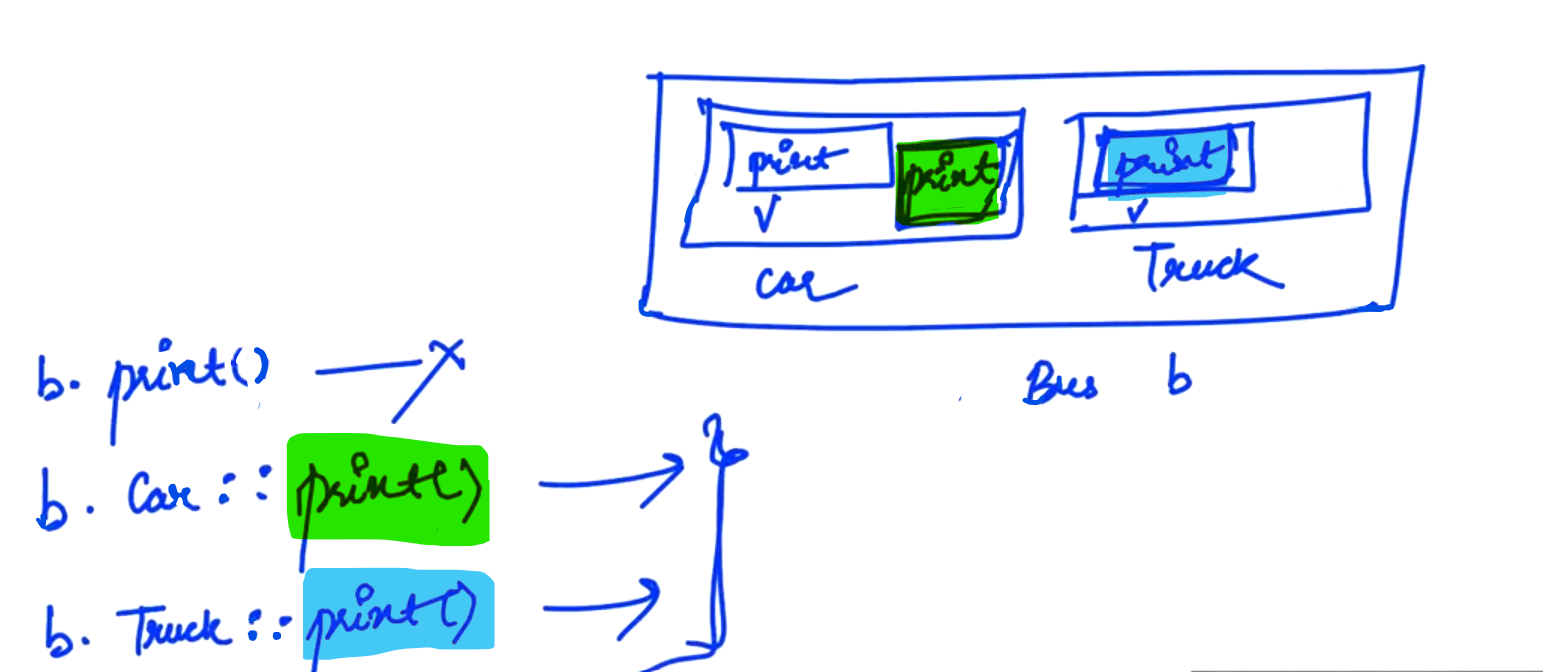 print print print
Car Truck
Bus b
b. print()
b. Car :: print()
b. Truck :: print()